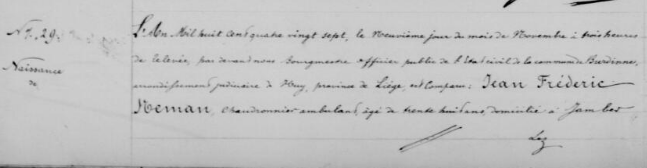 N°. 29.
Naissance
de
L'An Mil huit cent quatre vingt sept, le Neuvième jour du mois de Novembre à trois heures
de relevée, par devant nous Bourgmestre officier public de l'Etat civil de la commune
arrondissement judiciaire de Huy, province de Liége, est Comparu : Jean Fréderic
Neman, chaudronnier ambulant, âgé de trente huit ans, domicilié à Jambes